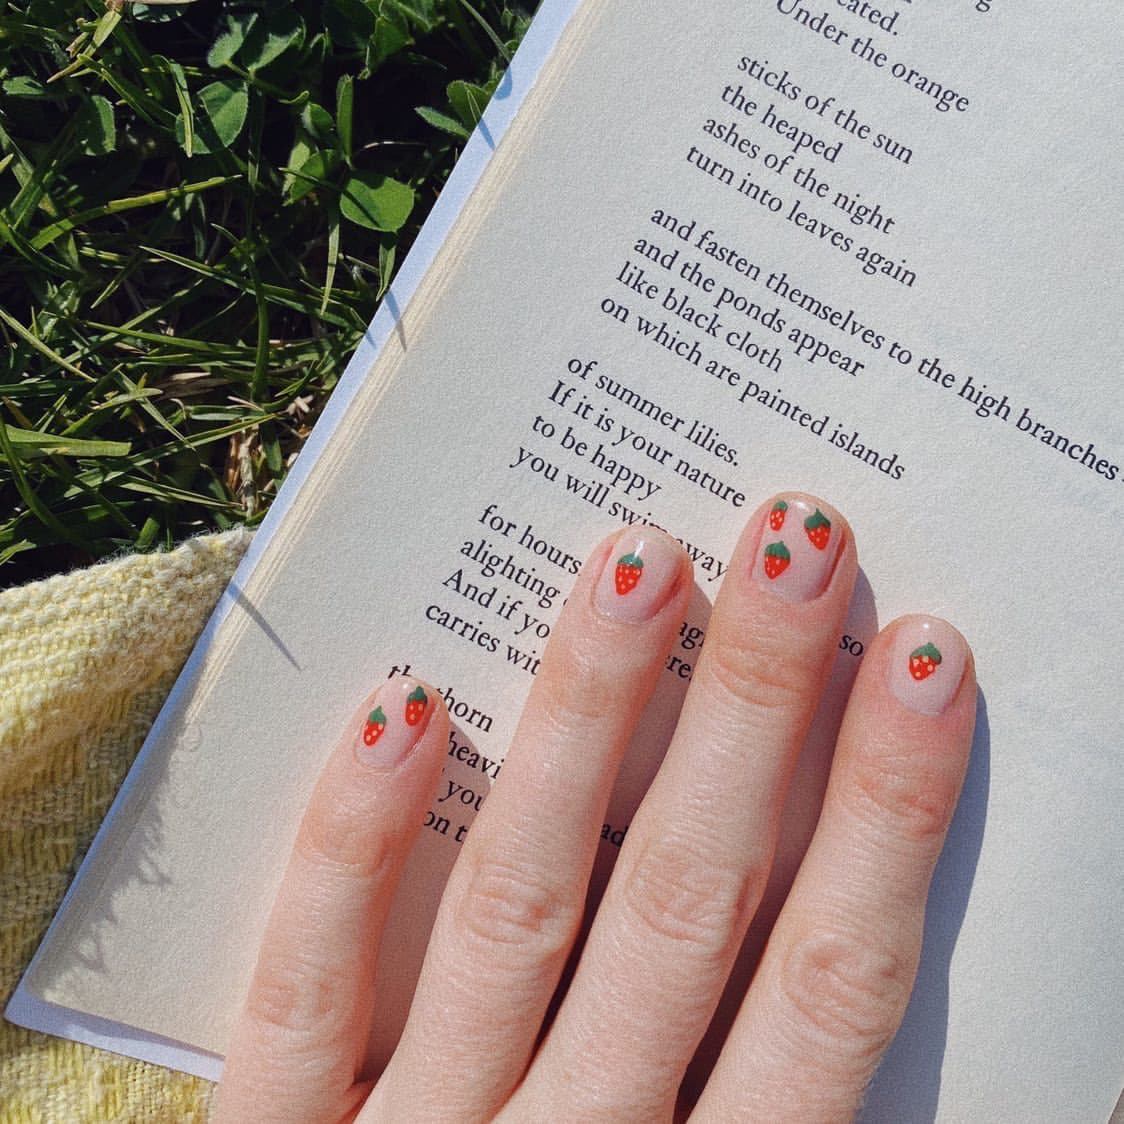 eated.
Under the orange
sticks of the sun
the heaped
ashes of the night
turn into leaves again
and fasten themselves to the high branches
and the ponds appear
like black cloth
on which are painted islands
of summer lilies.
If it is your nature
to be happy
you will swim away so
for hours
alighting
And if yo
carries wit
the thorn
heavi ad
you
on t